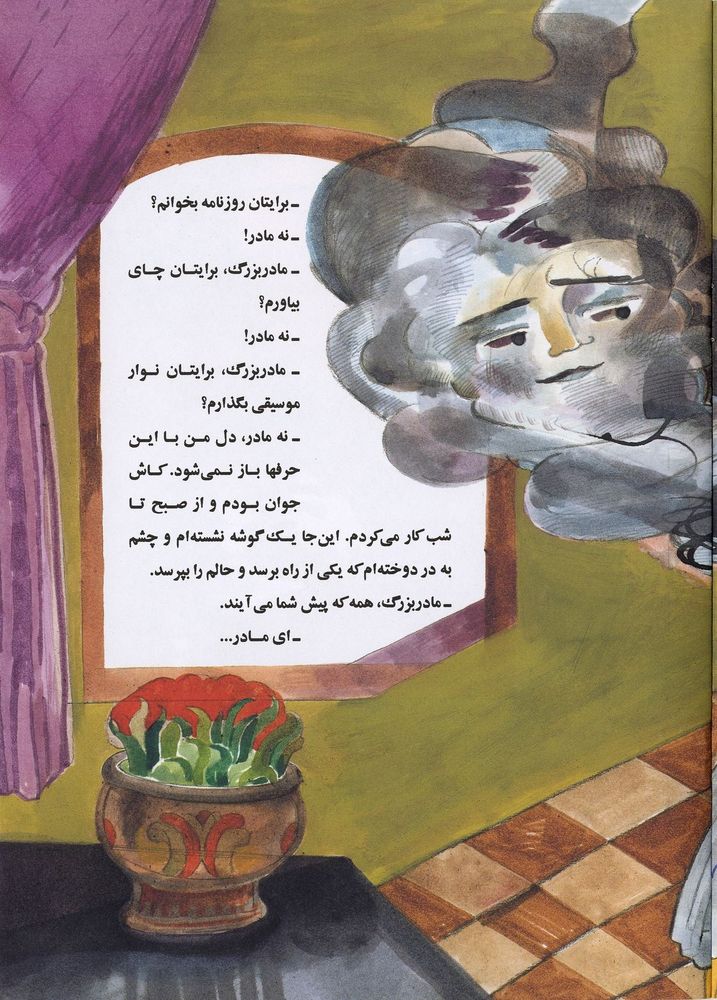 ـ برایتان روزنامه بخوانم؟
ـ نه مادر!
ـ مادربزرگ، برایتان چای
بیاورم؟
ـ نه مادر!
ـ مادربزرگ، برایتان نوار
موسیقی بگذارم؟
ـ نه مادر، دل من با این
حرفها باز نمی‌شود. کاش
جوان بودم و از صبح تا
شب کار می‌کردم. این‌جا یک گوشه نشسته‌ام و چشم
به در دوخته‌ام که یکی از راه برسد و حالم را بپرسد.
ـ مادربزرگ، همه که پیش شما می‌آیند.
ـ ای مادر...